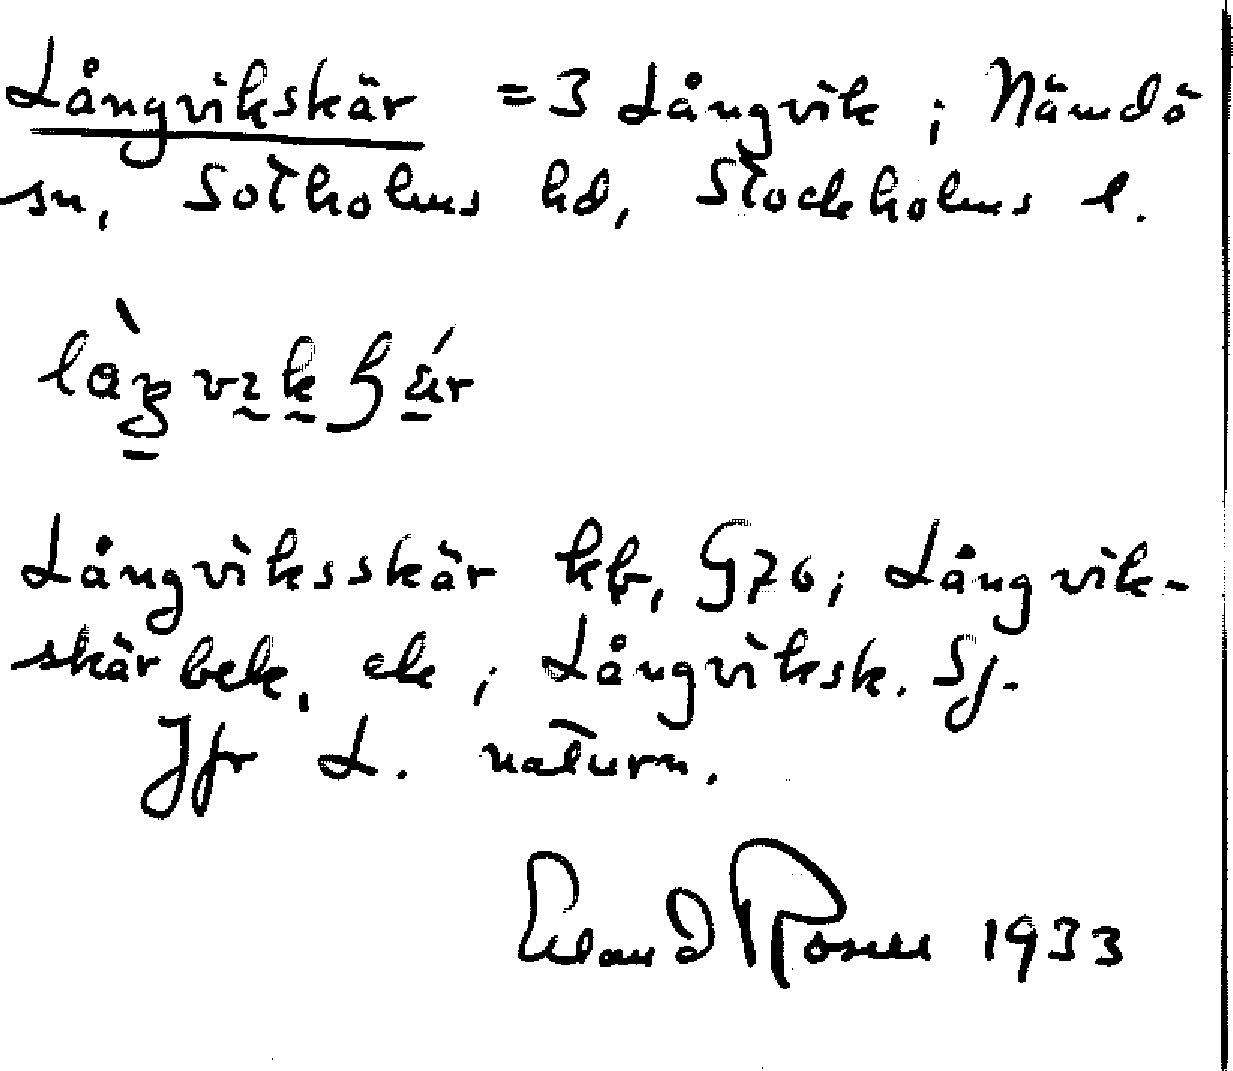 Långvikskär = 3 Långvik; Nämdö
sn, Sotholms hd, Stockholms l.
Långviksskär kb, G76; Långvik-
skär bek, ek; Långviksk. Sj.
Jfr L. naturn.
Erland Rosell 1933